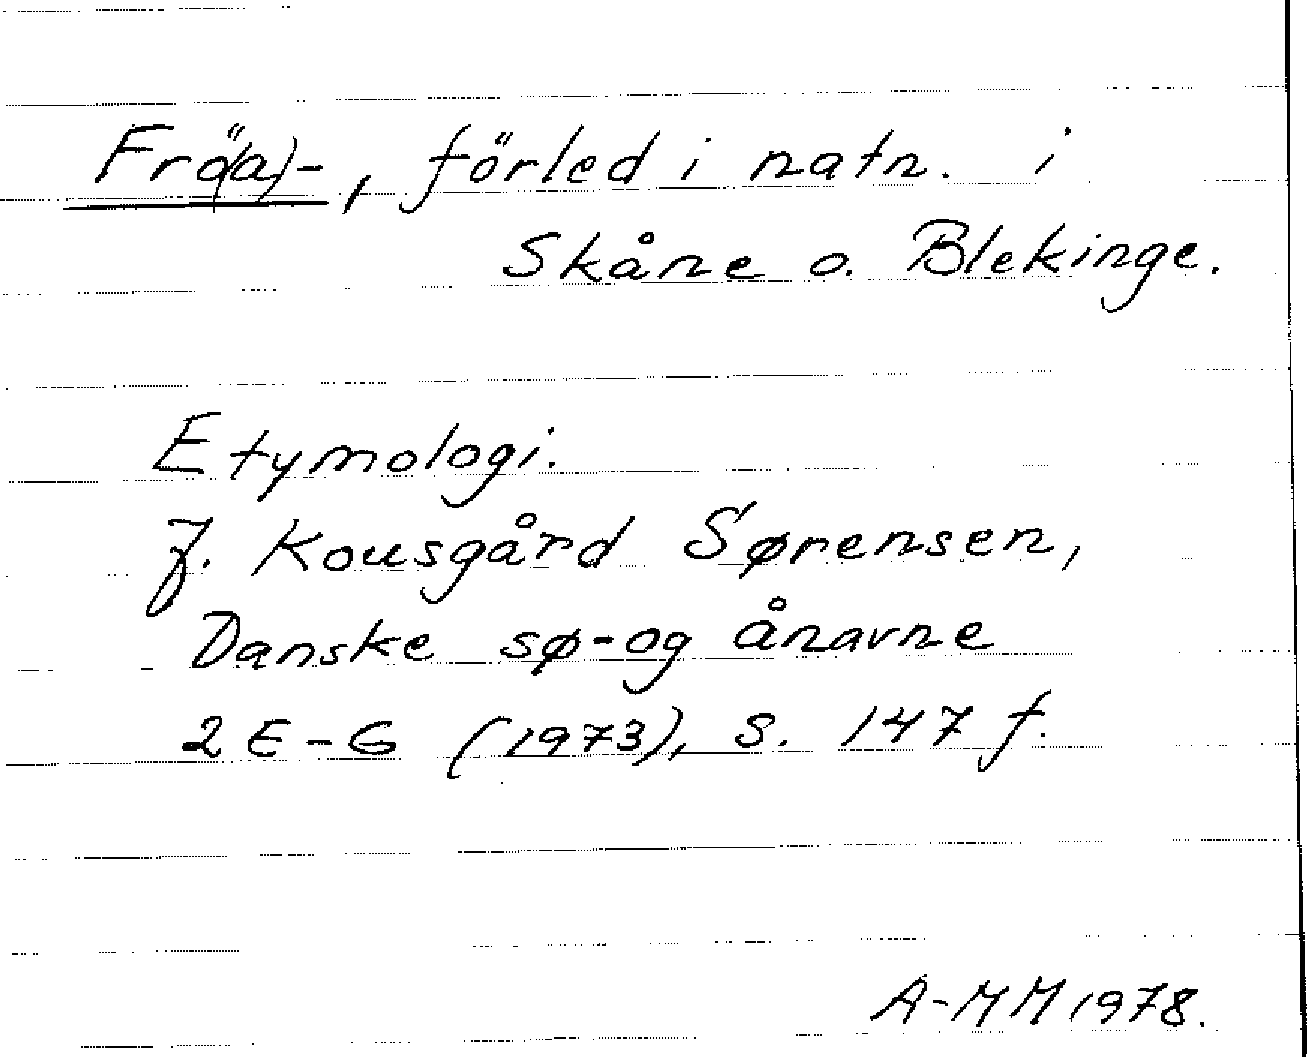 Frö(a)-, förled i natn. i
Skåne o. Blekinge.
Etymologi.
J. Kousgård Sørensen,
Danske sø- og ånavne
2 E-G (1973), s. 147 f.
A-MM 1978.